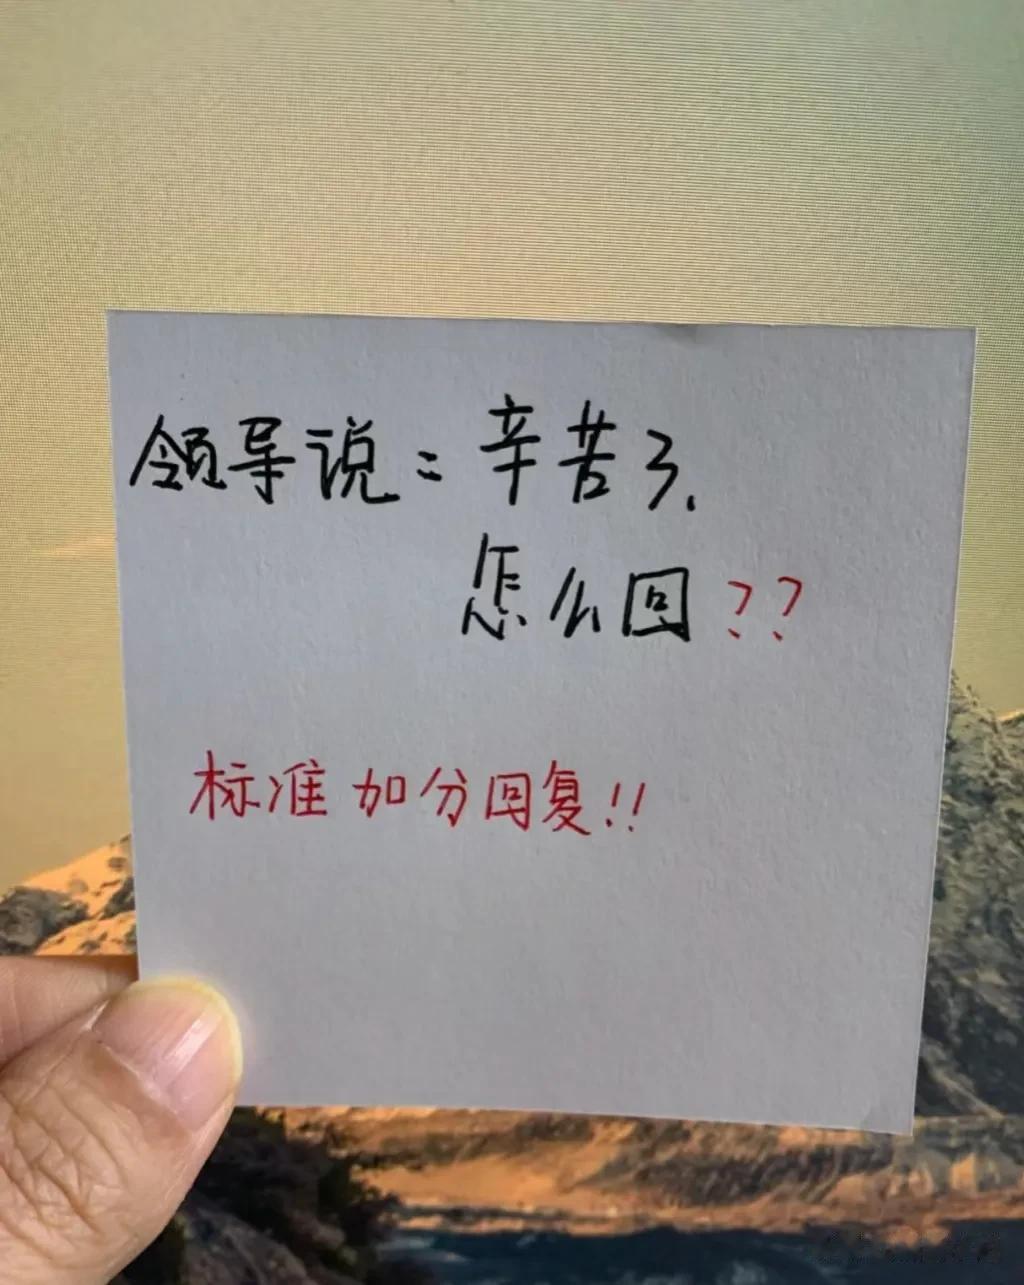 领导说：辛苦了.
怎么回??
标准加分回复!!